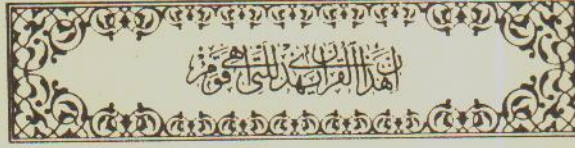 إِنَّ هَذَا الْقُرْآنَ يَهْدِي لِلَّتِي هِيَ أَقْوَمُ